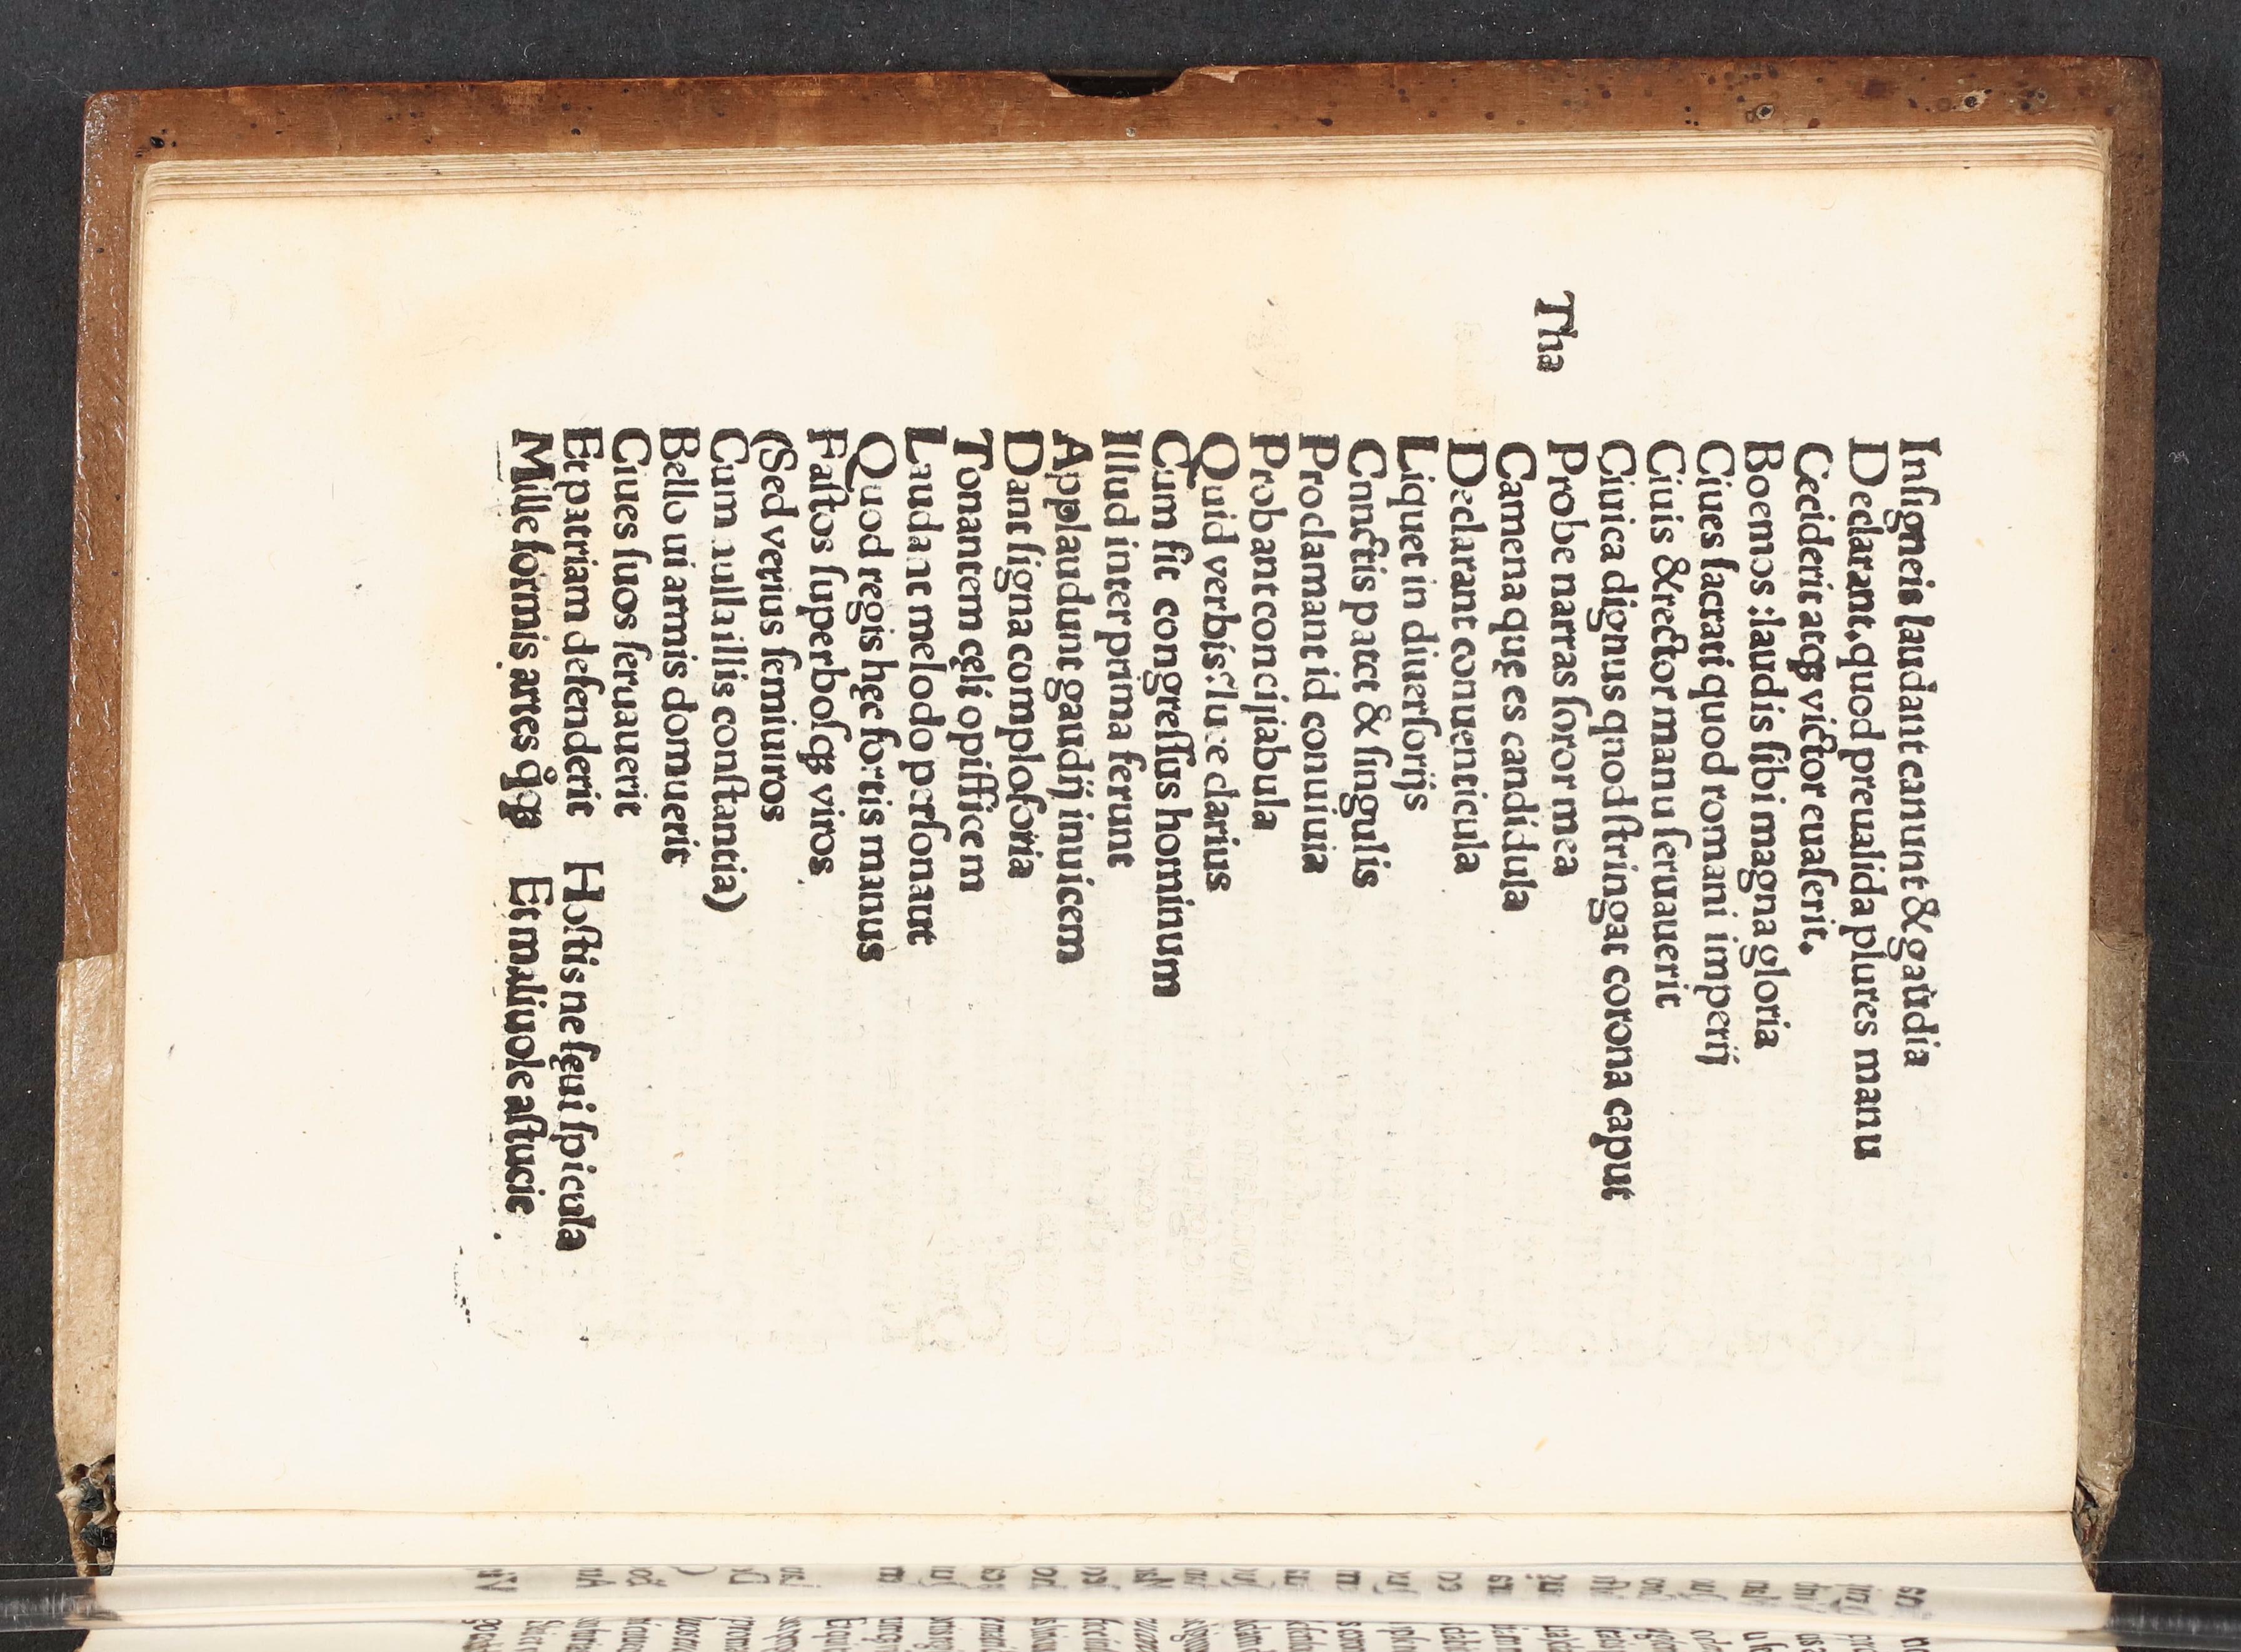 Inſigneis laudant canunt & gaudia
Declarant, quod preualida plures manu
Ceciderit atqꝫ victor euaſerit.
Boemos: laudis ſibi magna gloria
Ciues ſacrati quod romani imperij
Ciuis & rector manu ſeruauerit
Ciuica dignus qnod ſtringat corona caput
Tha Probe narras ſoror mea
Camena quę es candidula
Declarant conuenticula
Liquet in diuerſorijs
Cunctis patet & ſingulis
Proclamant id conuiuia
Probant concijiabula
Quid verbis: luce clarius
Cum ſit congreſſus hominum
Illud inter prima ferunt
Applaudunt gaudij inuicem
Dant ſigna comploſoria
Tonantem cęli opifficem
Laudant melodo perſonant
Quod regis hęc fortis manus
Faſtos ſuperboſqꝫ viros
(Sed verius ſemiuros
Cum nulla illis conſtantia)
Bello ui armis domuerit
Ciues ſuos ſeruauerit
Et patriam defenderit Hoſtis ne ſęui ſpicula
Mille formis artes qͦqꝫ Et maliuole aſtucie